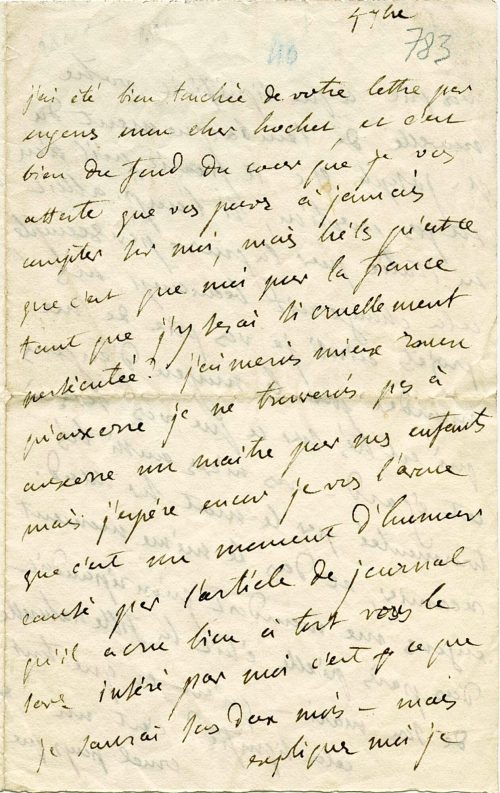 4 7bre
46
783
j'ai été bien touchée de votre lettre par
eugene mon cher hochet et c'est
bien du fond du coeur que je vous
atteste que vous pouvez à jamais
compter sur moi, mais hélas qu'est ce
que c'est que moi pour la france
tant que j'y serai si cruellement
persécutée? j'aimerois mieux rouen
qu'auxerre je ne trouverois pas à
auxerre un maitre pour mes enfants
mais j'espére encor je vous l'avoue
que c'est un moment d'humeur
causé par l'article de journal
qu'il a cru bien à tort vous le
savez inséré par moi c'est ce que
je saurai sous deux mois – mais
expliquez moi je